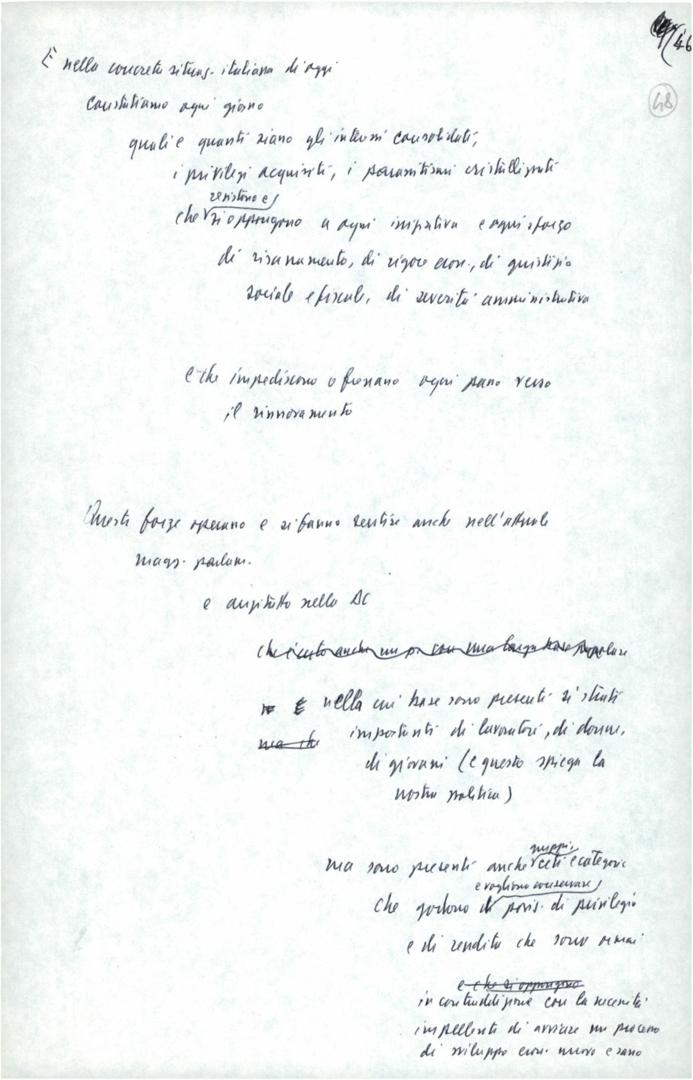 46
48
E nella concreta situaz. italiana di oggi
constatiamo ogni giorno
quali e quanti siano gli interessi consolidati,
i privilegi acquisiti, i parassitismi cristallizzati
resistono e
che si oppongono a ogni iniziativa e ogni sforzo
di risanamento, di rigore econ., di giustizia
sociale e fiscale, di severità amministrativa
e che impediscono o frenano ogni passo verso
il rinnovamento
Queste forze operano e si fanno sentire anche nell'attuale
magg. parlam.
e anzitutto nella DC
che è certo anche un po con una larga base popolare
E nella cui base sono presenti sì strati
ma che importanti di lavoratori, di donne,
di giovani (e questo spiega la
nostra politica)
gruppi,
ma sono presenti anche ceti e categorie
e vogliono conservare
che godono di posiz. di privilegio
e di rendita che sono ormai
e che si oppongono
in contraddizione con la necessità
impellente di avviare un processo
di sviluppo econ. nuovo e sano